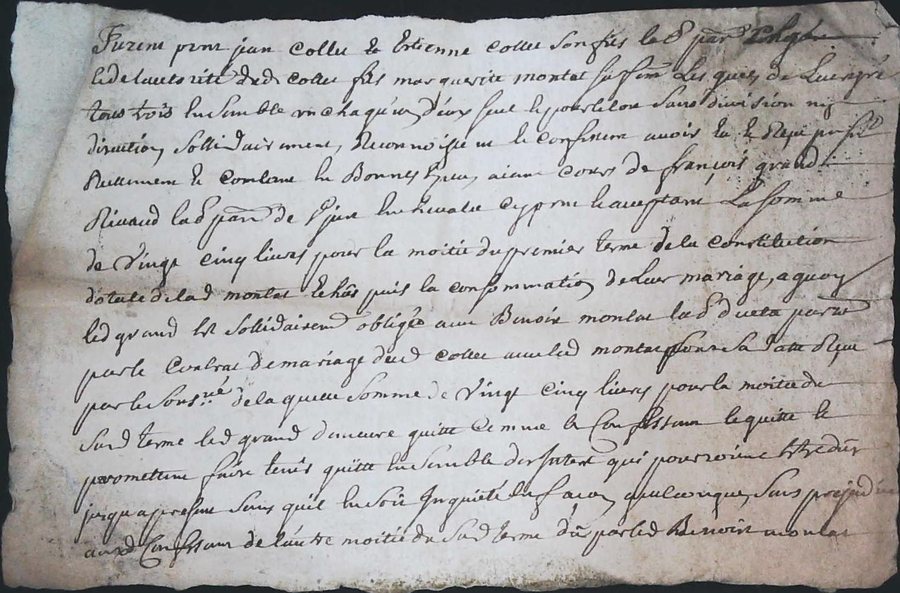 furent pnts jean collet et Etienne collet son fils le
de lauthorité dud collet fils marguerite montat sa fem Les quels de Leur gré
tous trois Ensemble un chaqu'un d'eux seul et pour le tout sans division ny
direction, sollidairement, Reconnoissent et confessent avoir Eu et Reçu
Reellement et contant En Bonnes Espe, aiant cours de françois grand
Rivaud lad parr de St jean En chevalet cy pnt et acceptant La somme
de Vingt cinq livres pour la moitié du premier terme de la constitution
dotale de lad montat Echûs puis la consommation de Leur mariage, a quoy
led grand Est sollidairemt obligé avec Benoit montat
par le Contrat de mariage dud collet avec lad montat sa datte Reçu
par le sousné de laquelle somme de Vingt cinq livres pour la moitié du
susd terme led grand demeure quitte Comme les Confessant le quitte et
promettent faire tenir quitte Ensemble des Interest qui pourroient Etre dûs
jusqu'a present sans quil En soit Inquiété En façon quelconque, sans prejudice
auxd Confessant de l'autre moitié du susd terme dû par led Benoit montat